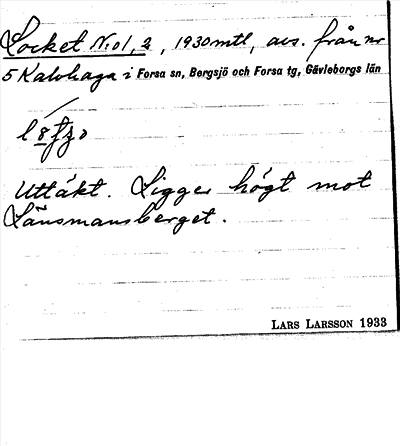 Locket No 1, 2, 1930 mtl, avs. från nr
5 Kalvhaga i Forsa sn, Bergsjö och Forsa tg, Gävleborgs län
Uttäkt. Ligger högt mot
Länsmansberget.
LARS LARSSON 1933